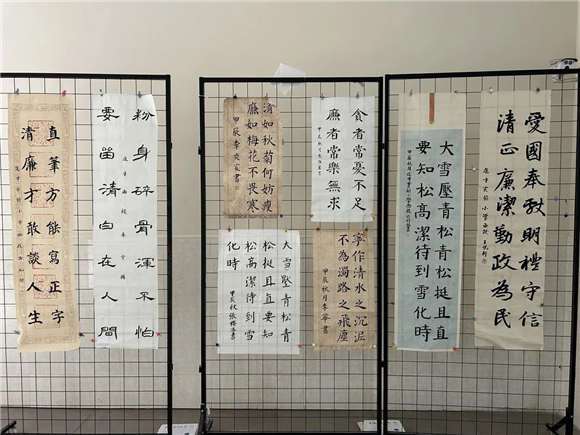 直筆方能寫正字
清廉才敢談人生
粉身碎骨渾不怕
要留清白在人間
清如秋菊何妨瘦
廉如梅花不畏寒
貪者常憂不足
廉者常樂無求
大雪壓青松青
松挺且直要知
松高潔待到雪
化時
寧作清水之沉泥
不為濁路之飛塵
甲辰秋月李華書
大雪壓青松青松挺且直
要知松高潔待到雪化時
愛國奉獻明禮守信
清正廉潔勤政為民